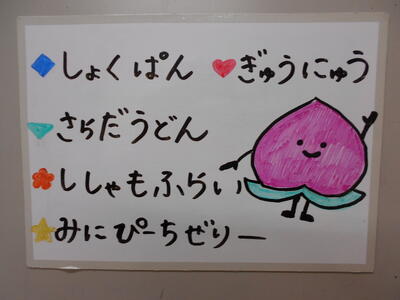 しょくぱん ぎゅうにゅう
さらだうどん
ししゃもふらい
みにぴーちぜりー